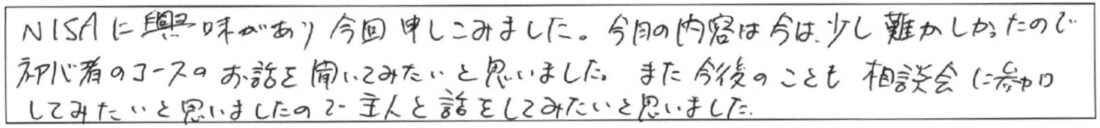 NISAに興味があり今回申しこみました。今月の内容は今は、少し難かしかったので
初心者のコースのお話を聞いてみたいと思いました。また今後のことも相談会に参加
してみたいと思いましたので主人と話をしてみたいと思いました。